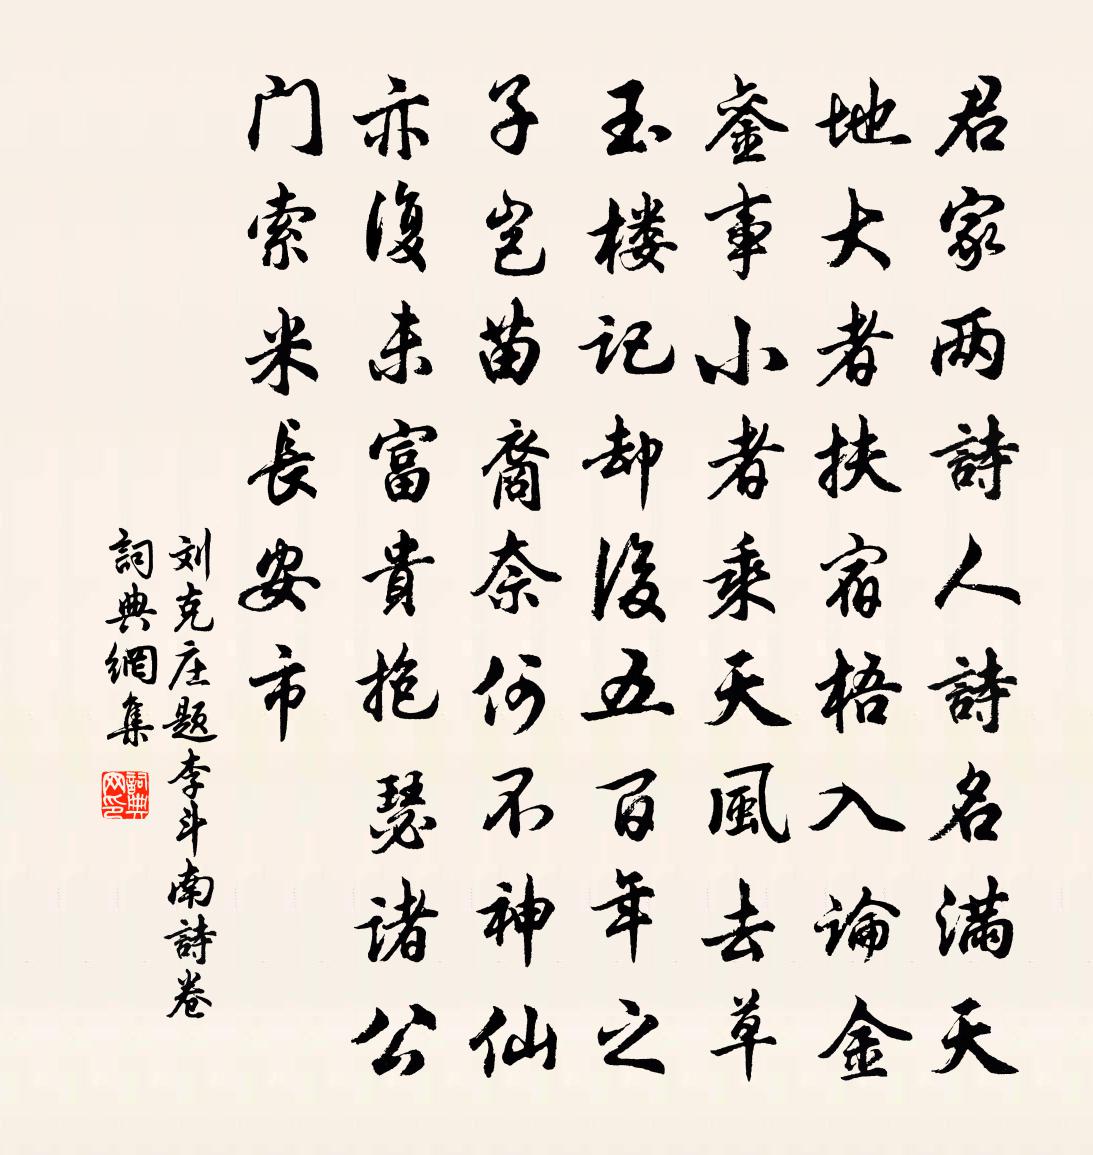 君家两詩人詩名满天
地大者扶宿梧入論金
銮事小者乘天風去草
玉楼记却後五百年之
子岂苗裔奈何不神仙
亦復未富貴抱瑟诸公
门索米長安市
刘克庄题李斗南詩卷
詞典網集
詞典网印